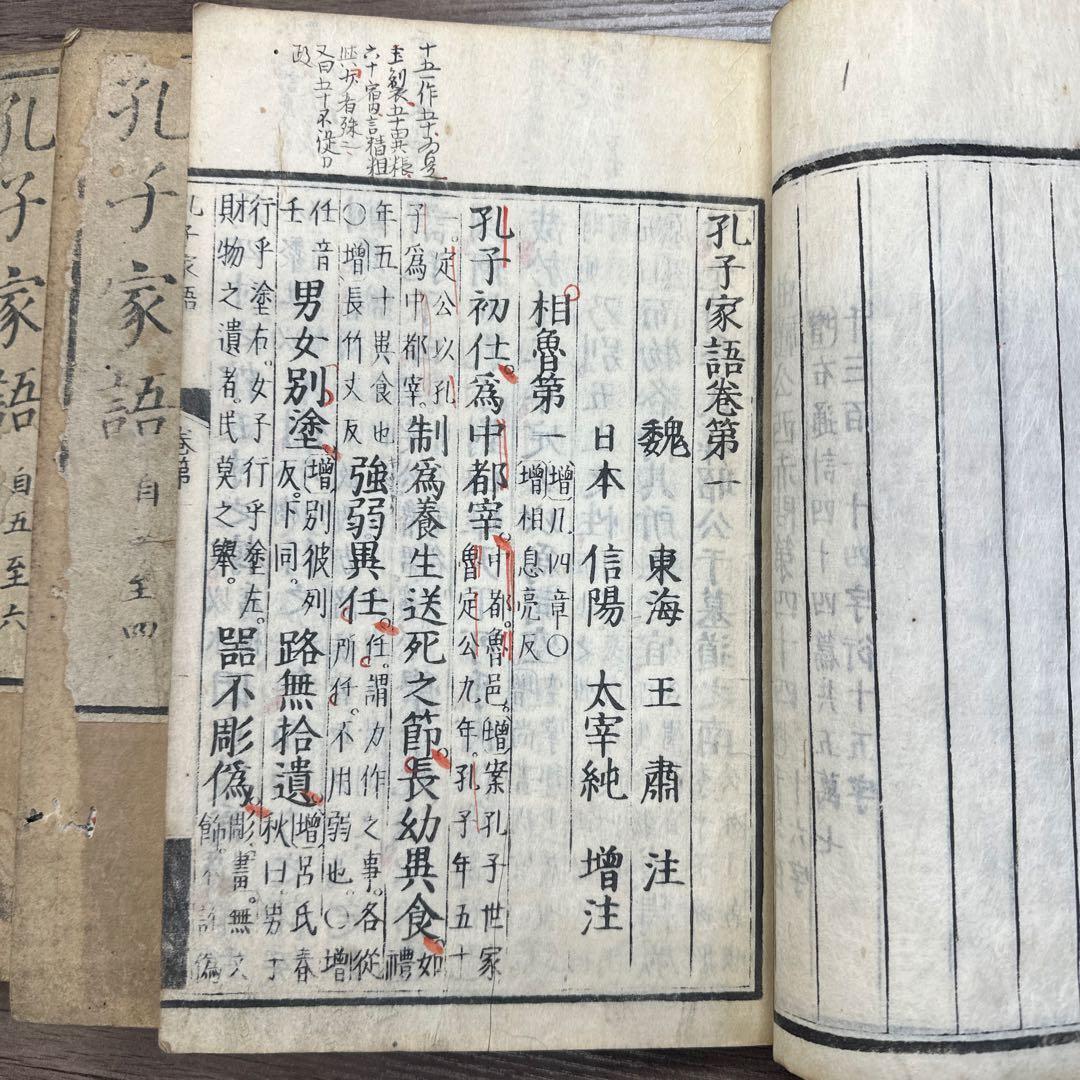 孔子家語卷第一
魏　東海　王肅　注
日本　信陽　太宰純　增注
相魯第一
增凡四章〇
增相息亮反
孔子初仕。爲中都宰。
中都。魯邑。增案孔子世家
魯定公九年。孔子年五十
一。定公以孔
子爲中都宰。
制爲養生送死之節。長幼異食。
如禮
年五十異食也
〇增長竹丈反
強弱異任。
任。謂力作之事。各從
所任。不用弱也。〇增
任音
壬
男女別塗。
增別彼列
反。下同。
路無拾遺。
增呂氏春
秋曰。男子
行乎塗右。女子行乎塗左。
財物之遺者。民莫之舉。
器不彫僞。
彫。畫。無文
飾。不詐僞
孔子家語
卷第一
十五一作五十
六十宿
又曰五十不從力
政
孔子家語
自一至四
孔子家語
自五至六